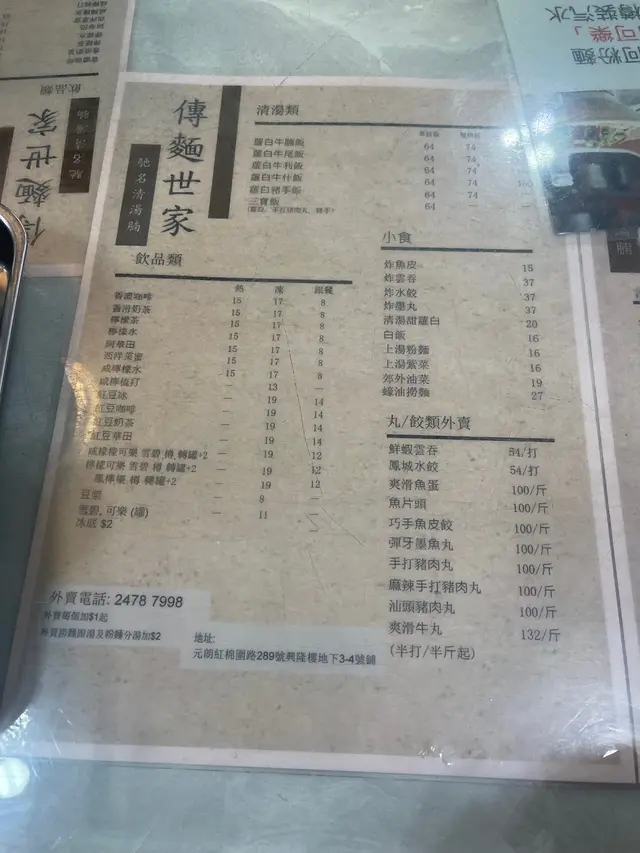 傳麵世家
馳名清湯腩
清湯類
蘿白牛腩飯 64 74
蘿白牛尾飯 64 74
蘿白牛利飯 64 74
蘿白牛什飯 64 74
蘿白豬手飯 64 74
三寶飯 64 —
飲品類
熱 凍 跟餐
香濃咖啡 15 17 8
香滑奶茶 15 17 8
檸檬茶 15 17 8
檸檬水 15 17 8
阿華田 15 17 8
西洋菜蜜 15 17 8
咸檸檬水 15 17 8
咸檸梳打 — 13 —
紅豆冰 — 19 14
紅豆咖啡 — 19 14
紅豆奶茶 — 19 14
紅豆華田 — 19 14
咸檸檬可樂 雪碧 樽 轉罐+2 — 19 12
檸檬可樂 雪碧 樽 轉罐+2 — 19 12
樽 轉罐+2 — 19 12
豆漿 — 9 —
雪碧, 可樂 (罐) — 11 —
冰底 $2
小食
炸魚皮 15
炸雲吞 37
炸水餃 37
炸墨丸 37
清湯甜蘿白 20
白飯 16
上湯粉麵 16
上湯紫菜 16
郊外油菜 19
蠔油撈麵 27
丸/餃類外賣
鮮蝦雲吞 54/打
鳳城水餃 54/打
爽滑魚蛋 100/斤
魚片頭 100/斤
巧手魚皮餃 100/斤
彈牙墨魚丸 100/斤
手打豬肉丸 100/斤
麻辣手打豬肉丸 100/斤
汕頭豬肉丸 100/斤
爽滑牛丸 132/斤
(半打/半斤起)
外賣電話: 2478 7998
外賣每個加$1起
外賣撈麵跟湯及粉麵分湯加$2
地址:
元朗紅棉圍路289號興隆樓地下3-4號舖